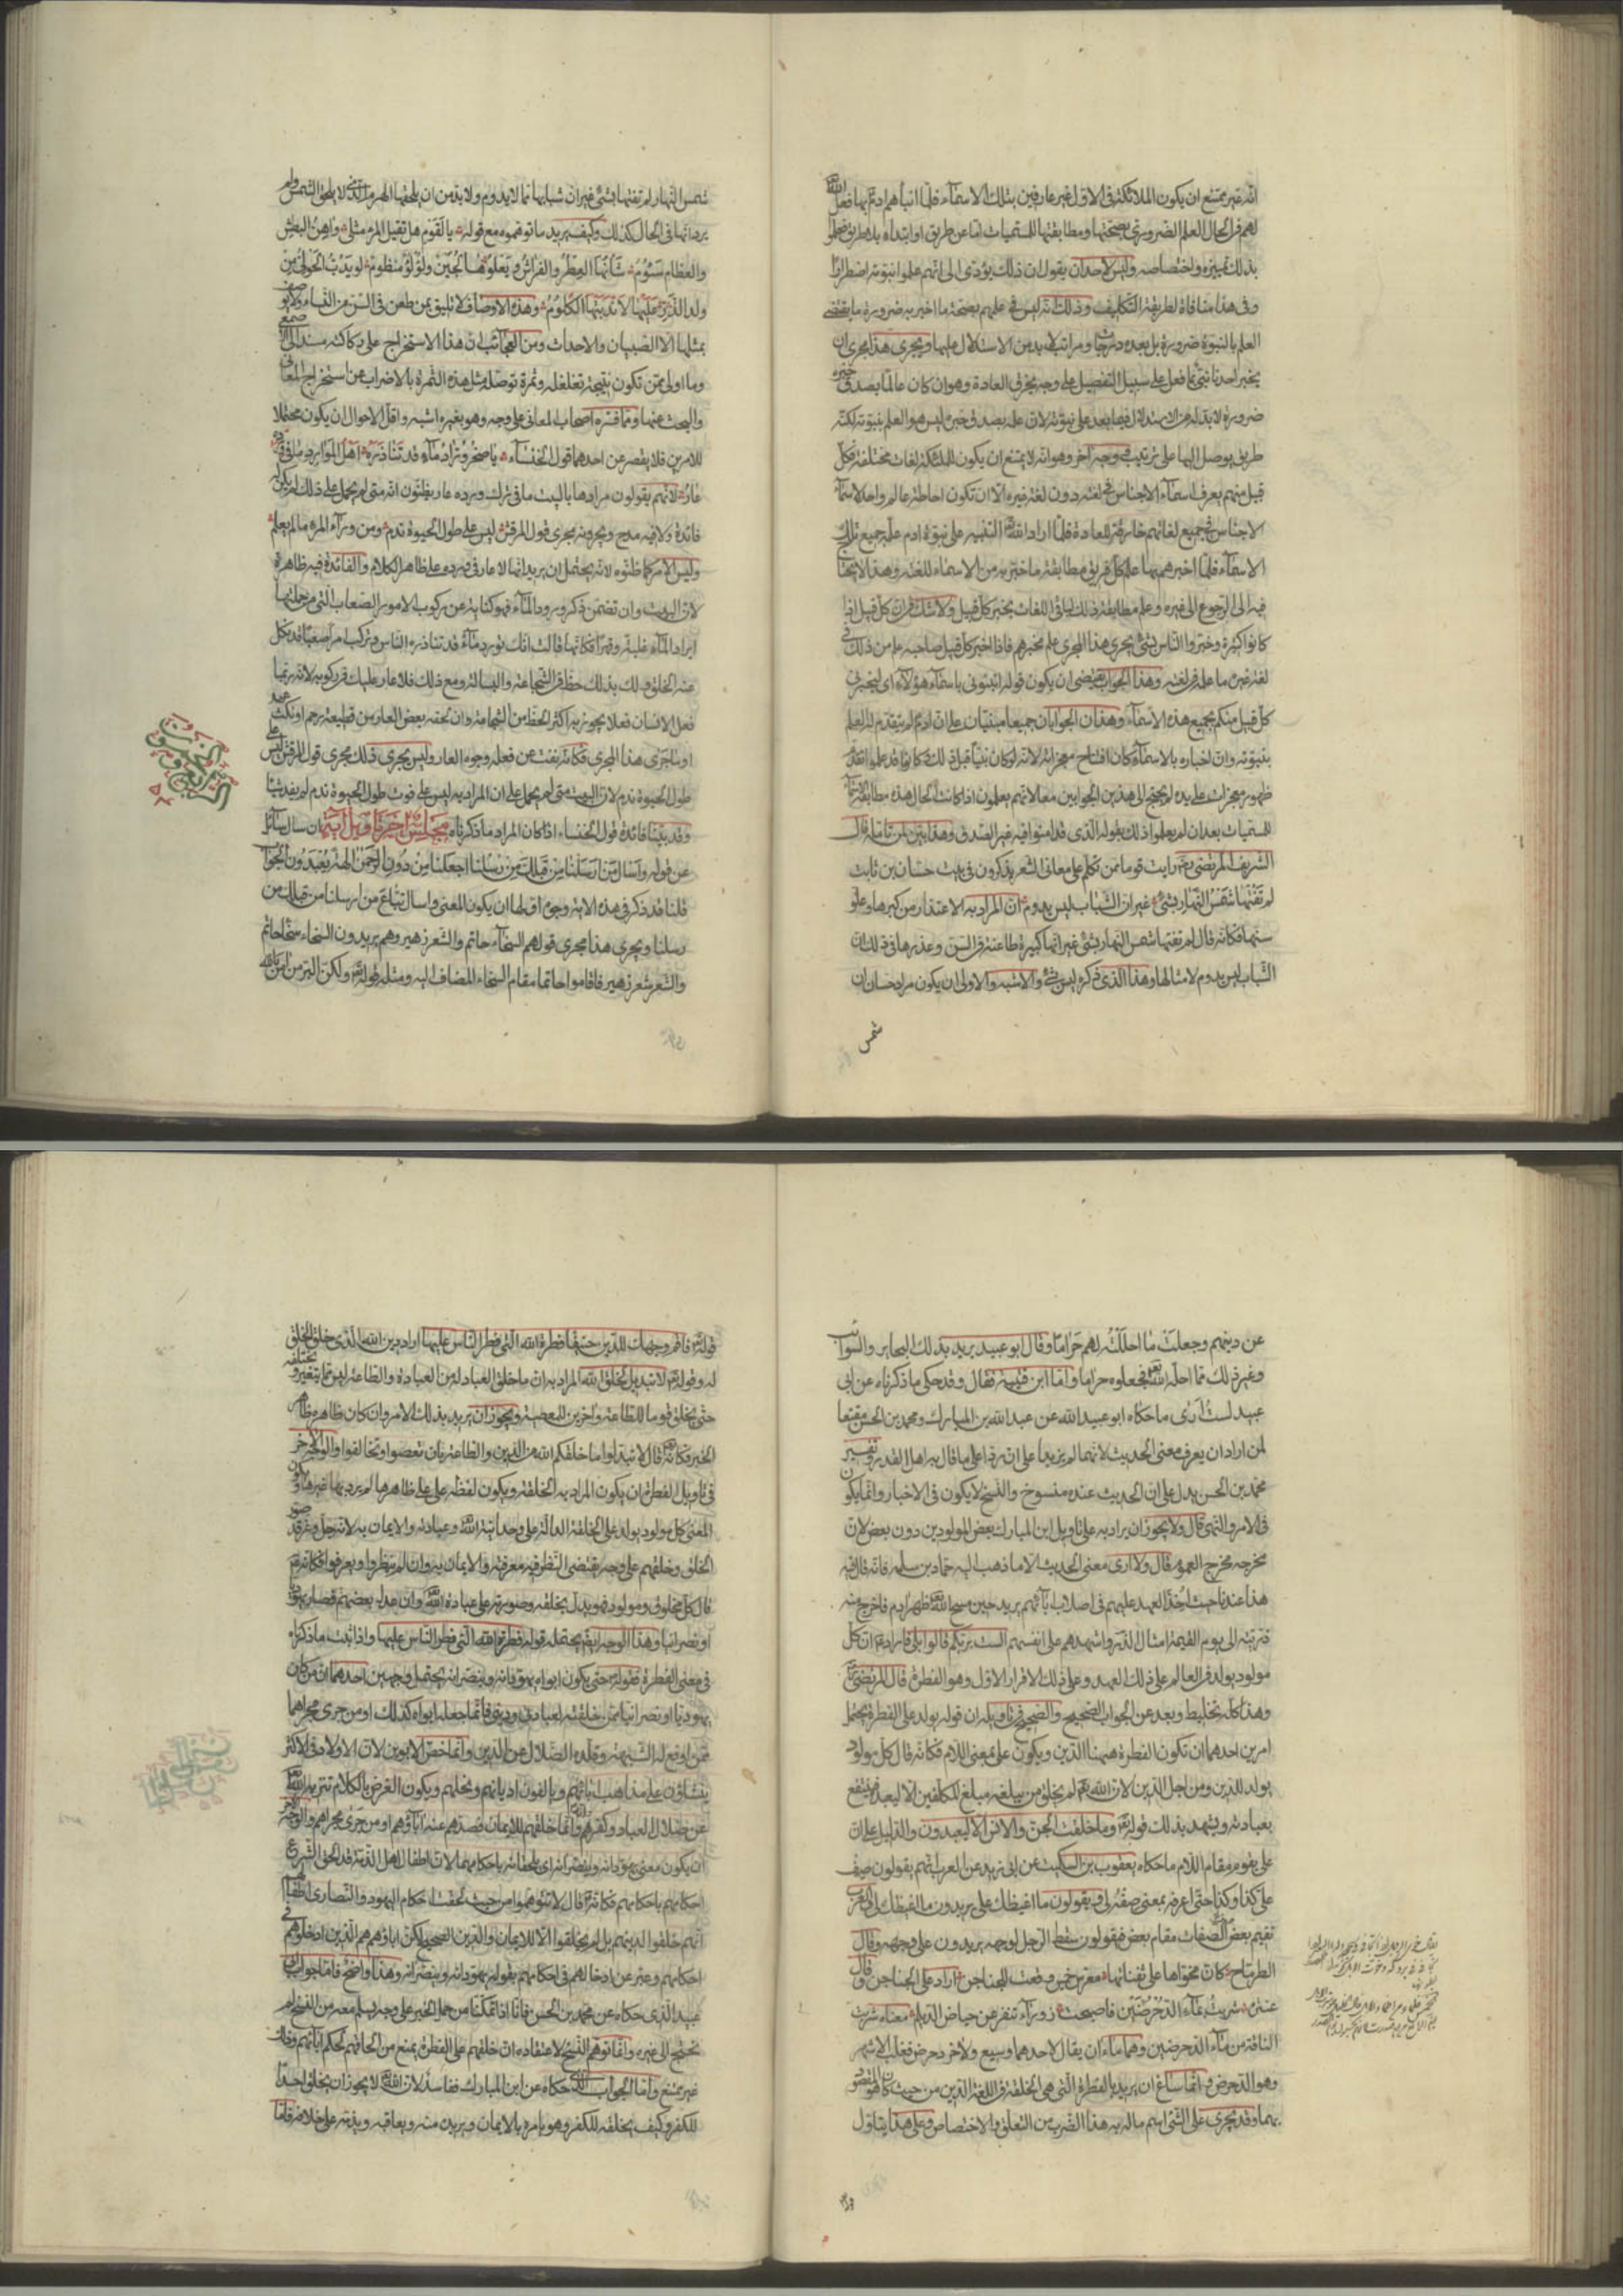 انه غير ممتنع ان يكون الملائكة في الاول غير عارفين بتلك الاسماء فلما انبأهم ادم بها فعل الله
لهم في الحال العلم الضروري بصحتها ومطابقتها للمسميات اما عن طريق او ابتداء بلا طريق فعلموا
بذلك تمييزه واختصاصه وليس لاحد ان يقول ان ذلك يؤدي الى انهم علموا نبوته اضطرارا
وفي هذا منافاة لطريقة التكليف وذلك انه ليس في علمهم بصحة ما اخبر به ضرورة ما يقتضي
العلم بالنبوة ضرورة بل بعده درجات ومراتب لا بد من الاستدلال عليها ويجري هذا مجرى ان
يخبر احدنا نبي بما فعل على سبيل التفصيل على وجه يخرق العادة وهو وان كان عالما بصدق خبره
ضرورة لا بد له من الاستدلال فيما بعد على نبوته لان علمه بصدق خبره ليس هو العلم بنبوته لكنه
طريق يوصل اليها على ترتيب ووجه اخر وهو انه لا يمتنع ان يكون للملائكة لغات مختلفة فكل
قبيل منهم يعرف اسماء الاجناس في لغته دون لغة غيره الا ان تكون احاطة عالم واحد لاسماء
الاجناس في جميع لغاتهم خارقة للعادة فلما اراد الله التنبيه على نبوة ادم علمه جميع تلك
الاسماء فلما اخبرهم بها علم كل فريق مطابقة ما خبر به من الاسماء للغته وهذا لا يحتاج
فيه الى الرجوع الى غيره وعلم مطابقة ذلك لباقي اللغات بخبر كل قبيل ولا شك في ان كل قبيل اذا
كانوا كثيرة وخبروا الناس بشيء يجري هذا المجرى علم بخبرهم فاذا اخبر كل قبيل صاحبه علم من ذلك في
لغة غيره ما علمه في لغته وهذا الجواب يقتضي ان يكون قوله انبئوني باسماء هؤلاء اي ليخبرني
كل قبيل منكم بجميع هذه الاسماء وهذان الجوابان جميعا مبنيان على ان ادم لم يتقدم لهم العلم
بنبوته وان اخباره بالاسماء كان افتتاح معجزاته لانه لو كان نبيا قبل ذلك وكانوا قد علموا تقدم
ظهور معجزات على يده لم يحتج الى هذين الجوابين معا لانهم يعلمون اذا كانت الحال هذه مطابقة الاسماء
للمسميات بعد ان لم يعلموا ذلك بقوله الذي قد امنوا فيه غير الصدق وهذا بين لمن تأمله قال
الشريف المرتضى رايت قوما ممن تكلم على معاني الشعر يذكرون في بيت حسان بن ثابت
لم تفتها شمس النهار بشيء غير ان الشباب ليس يدوم ان المراد به الاعتذار من كبرها وعلو
سنها فكانه قال لم تفتها شمس النهار بشيء غير انها كبيرة طاعنة في السن وعذرها في ذلك ان
الشباب ليس يدوم لامثالها وهذا الذي ذكره ليس بشيء والاشبه والاولى ان يكون مراد حسان ان
شمس
شمس النهار لم تفتها بشيء غير ان شبابها مما لا يدوم ولا بد من ان يلحقها الهرم الذي لا يلحق الشمس ولم
يرد انها في الحال كذلك وكيف يريد ما توهموه مع قوله يا لقوم هل يقتل المرء مثلي واهن البطش
والعظام سؤوم شأنها العطر والفراش ويعلوها لجين ولؤلؤ منظوم لو يدب الحولي من
ولد الذر عليها لاندبتها الكلوم وهذه الاوصاف لا تليق بمن طعن في السن من النساء ولا يوصف
بمثلها الا الصبيان والاحداث ومن العجائب ان هذا الاستخراج على ركاكته مسند الى الاصمعي
وما اولى ممن تكون نتيجة تغلغله وثمرة توصل مثل هذه الثمرة بالاضراب عن استخراج المعاني
والبحث عنها ومما فسره اصحاب المعاني على وجه وهو بغيره اشبه واقل الاحوال ان يكون محتملا
للامرين فلا يقصر عن احدهما قول الخنساء يا صخر وراد ماء قد تناذره اهل الموارد ما في ورده
عار لانهم يقولون مرادها بالبيت ما في ترك ورده عار يظنون انه متى لم يحمل على ذلك لم يكن له
فائدة ولا فيه مدح ويجرونه مجرى قول المرقش ليس على طول الحيوة ندم ومن وراء المرء ما لم يعلم
وليس الامر كما ظنوه لانه يحتمل ان يريد انها لا عار في ورده على ظاهر الكلام والفائدة فيه ظاهرة
لان البيت وان تضمن ذكر ورود الماء فهو كناية عن ركوب الامور الصعاب التي من جملتها
ايراد الماء غلبة وقهرا فكانها قالت انك تورد ماء قد تناذره الناس وتركب امرا صعبا قد نكل
عنه الخلق ولك بذلك حظ في الشجاعة والبسالة ومع ذلك فلا عار عليك في ركوبه لانه ربما
فعل الانسان فعلا يحوز به اكثر الحظ من الشهامة وان لحقه بعض العار من قطيعة رحم او نكث عهد
او ما جرى هذا المجرى فكانه نفت عن فعله وجوه العار وليس يجري ذلك مجرى قول المرقش ليس على
طول الحيوة ندم لان البيت متى لم يحمل على ان المراد به ليس على فوت طول الحيوة ندم لم يفد شيئا
وقد بينا فائدة قول الخنساء اذا كان المراد ما ذكرناه مجلس اخر تاويل اية ان سال سائل
عن قوله واسال من ارسلنا من قبلك من رسلنا اجعلنا من دون الرحمن الهة يعبدون الجواب
قلنا قد ذكر في هذه الاية وجوه اولها ان يكون المعنى واسال تباع من ارسلنا من قبلك من
رسلنا ويجري هذا مجرى قولهم السخاء حاتم والشعر زهير وهم يريدون السخاء سخاء حاتم
والشعر شعر زهير فاقاموا حاتما مقام السخاء المضاف اليه ومثله قوله ولكن البر من امن بالله
عن دينهم وجعلت ما احللت لهم حراما وقال ابو عبيد يريد بذلك البحاير والسوائب
وغير ذلك مما احله الله فجعلوه حراما واما ابن قتيبة فقال وقد حكى ما ذكرناه عن ابي
عبيد لست ارى ما حكاه ابو عبيد الله عن عبد الله بن المبارك ومحمد بن الحسن مقنعا
لمن اراد ان يعرف معنى الحديث لانهما لم يزيدا على ان ردا على ما قال به اهل القدر وتفسير
محمد بن الحسن يدل على ان الحديث عنده منسوخ والنسخ لا يكون في الاخبار وانما يكون
في الامر والنهي قال ولا يجوز ان يراد به على تاويل ابن المبارك بعض المولودين دون بعض لان
مخرجه مخرج العموم قال ولا ارى معنى الحديث الا ما ذهب اليه حماد بن سلمه فانه قال فيه
هذا عندنا حيث اخذ العهد عليهم في اصلاب ابائهم يريد حين مسح الله ظهر ادم فاخرج منه
ذريته الى يوم القيمة امثال الذر واشهدهم على انفسهم الست بربكم قالوا بلى فاراد ان كل
مولود يولد في العالم على ذلك العهد وعلى ذلك الاقرار الاول وهو الفطرة قال المرتضى
وهذا كله تخليط وبعد عن الجواب الصحيح والصحيح في تاويله ان قوله يولد على الفطرة يحتمل
امرين احدهما ان تكون الفطرة هيهنا الدين ويكون على بمعنى اللام فكانه قال كل مولود
يولد للدين ومن اجل الدين لان الله لم يخلق من يبلغه مبلغ المكلفين الا ليعبده فينتفع
بعبادته ويشهد بذلك قوله وما خلقت الجن والانس الا ليعبدون والدليل على ان
على يقوم مقام اللام ما حكاه يعقوب بن السكيت عن ابي زيد عن العرب انهم يقولون صف
على كذا وكذا حتى اعرفه بمعنى صفه لي ويقولون ما اغيظك علي يريدون ما اغيظك لي والعرب
تقيم بعض الصفات مقام بعض فيقولون سقط الرجل لوجهه يريدون على وجهه وقال
الطرماح كان مخواها على ثفناتها معرس خمس وقعت للجناجن اراد على الجناجن وقال
عنترة شربت بماء الدحرضين فاصبحت زوراء تنفر عن حياض الديلم معناه شربت
الناقة من ماء الدحرضين وهما ماءان يقال لاحدهما وسيع والاخر دحرض فغلب الاشهر
وهو الدحرض وانما ساغ ان يريد بالفطرة التي هي الخلقة في اللغة الدين من حيث كان هو المقصود
بها وقد يجري على الشيء اسم ماله به هذا الضرب من التعلق والاختصاص وعلى هذا يتاول
قوله فاقم وجهك للدين حنيفا فطرة الله التي فطر الناس عليها اراد دين الله الذي خلق الخلق
له وقوله لا تبديل لخلق الله المراد به ان ما خلق العباد له من العبادة والطاعة ليس مما يتغير ويختلف
حتى يخلق قوما للطاعة واخرين للمعصية ويجوز ان يريد بذلك الامر وان كان ظاهره ظاهر
الخبر فكانه قال لا تبدلوا ما خلقكم الله من الدين والطاعة بان تعصوا وتخالفوا والوجه الاخر
في تاويل الفطرة ان يكون المراد به الخلقة ويكون لفظه على على ظاهرها لم يرد بها غيرها ويكون
المعنى كل مولود يولد على الخلقة الدالة على وحدانية الله وعبادته والايمان به لانه جل وعز قد صور
الخلق وخلقهم على وجه يقتضي النظر فيه معرفته والايمان به وان لم ينظروا ويعرفوا فكانه
قال كل مخلوق ومولود فهو يدل بخلقه وصورته على عبادة الله وان عدل بعضهم فصار يهوديا
او نصرانيا وهذا الوجه ايضا يحتمله قوله فطرة الله التي فطر الناس عليها واذا ثبت ما ذكرناه
في معنى الفطرة فقوله حتى يكون ابواه يهودانه وينصرانه يحتمل وجهين احدهما ان من كان
يهوديا او نصرانيا ممن خلقته لعبادتي وديني فانما جعله ابواه كذلك او من جرى مجراهما
ممن اوقع له الشبهة وقلده الضلال عن الدين وانما خص الابوين لان الاولاد في الاكثر
ينشاون على مذاهب ابائهم ويالفون اديانهم ونحلهم ويكون الغرض بالكلام تنزيه الله
عن ضلال العباد وكفرهم وانما خلقهم للايمان فصدهم عنه اباؤهم او من جرى مجراهم والوجه الاخر
ان يكون معنى يهودانه وينصرانه اي يلحقانه باحكامهما لان اطفال اهل الذمة قد الحق الشرع
احكامهم باحكامهم فكانه قال لا تتوهموا من حيث لحقت احكام اليهود والنصارى اطفالهم
انهم خلقوا لدينهم بل لم يخلقوا الا للايمان والدين الصحيح لكن اباؤهم هم الذين ادخلوهم في
احكامهم وعبر عن ادخالهم في احكامهم بقوله يهودانه وينصرانه وهذا واضح فاما جواب ابي
عبيد الذي حكاه عن محمد بن الحسن فانا اذا تمكنا من حمل الخبر على وجه يسلم معه من النسخ لم
نحتج الى غيره وانما توهم النسخ لاعتقاده ان خلقهم على الفطرة يمنع من الحاقهم بحكم ابائهم وذلك
غير ممتنع واما الجواب الذي حكاه عن ابن المبارك ففاسد لان الله لا يجوز ان يخلق احدا
للكفر وكيف يخلقه للكفر وهو يامره بالايمان ويريده منه ويعاقبه ويذمه على خلافه فاما